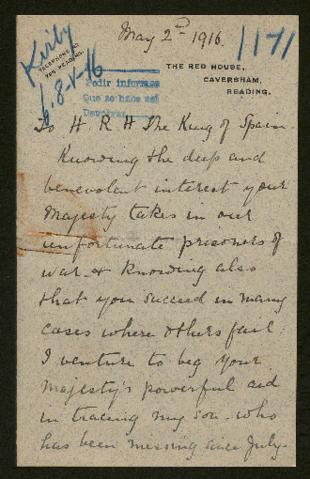 May 2nd 1916.
1171
Kirby
TELEPHONE
READING.
6.8-V-16
THE RED HOUSE,
CAVERSHAM,
READING.
Pedir informes
Que se hace así
To H R H The King of Spain.
Knowing the deep and
benevolent interest your
Majesty takes in our
unfortunate prisoners of
war & knowing also
that you succeed in many
cases where others fail:
I venture to beg your
Majesty's powerful aid
in tracing my son. who
has been missing since July.